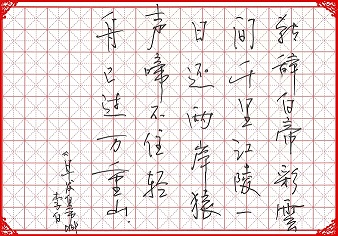 朝辞白帝彩雲
间千里江陵一
日还两岸猿
声啼不住轻
舟已过万重山.
《早发白帝城》
李白